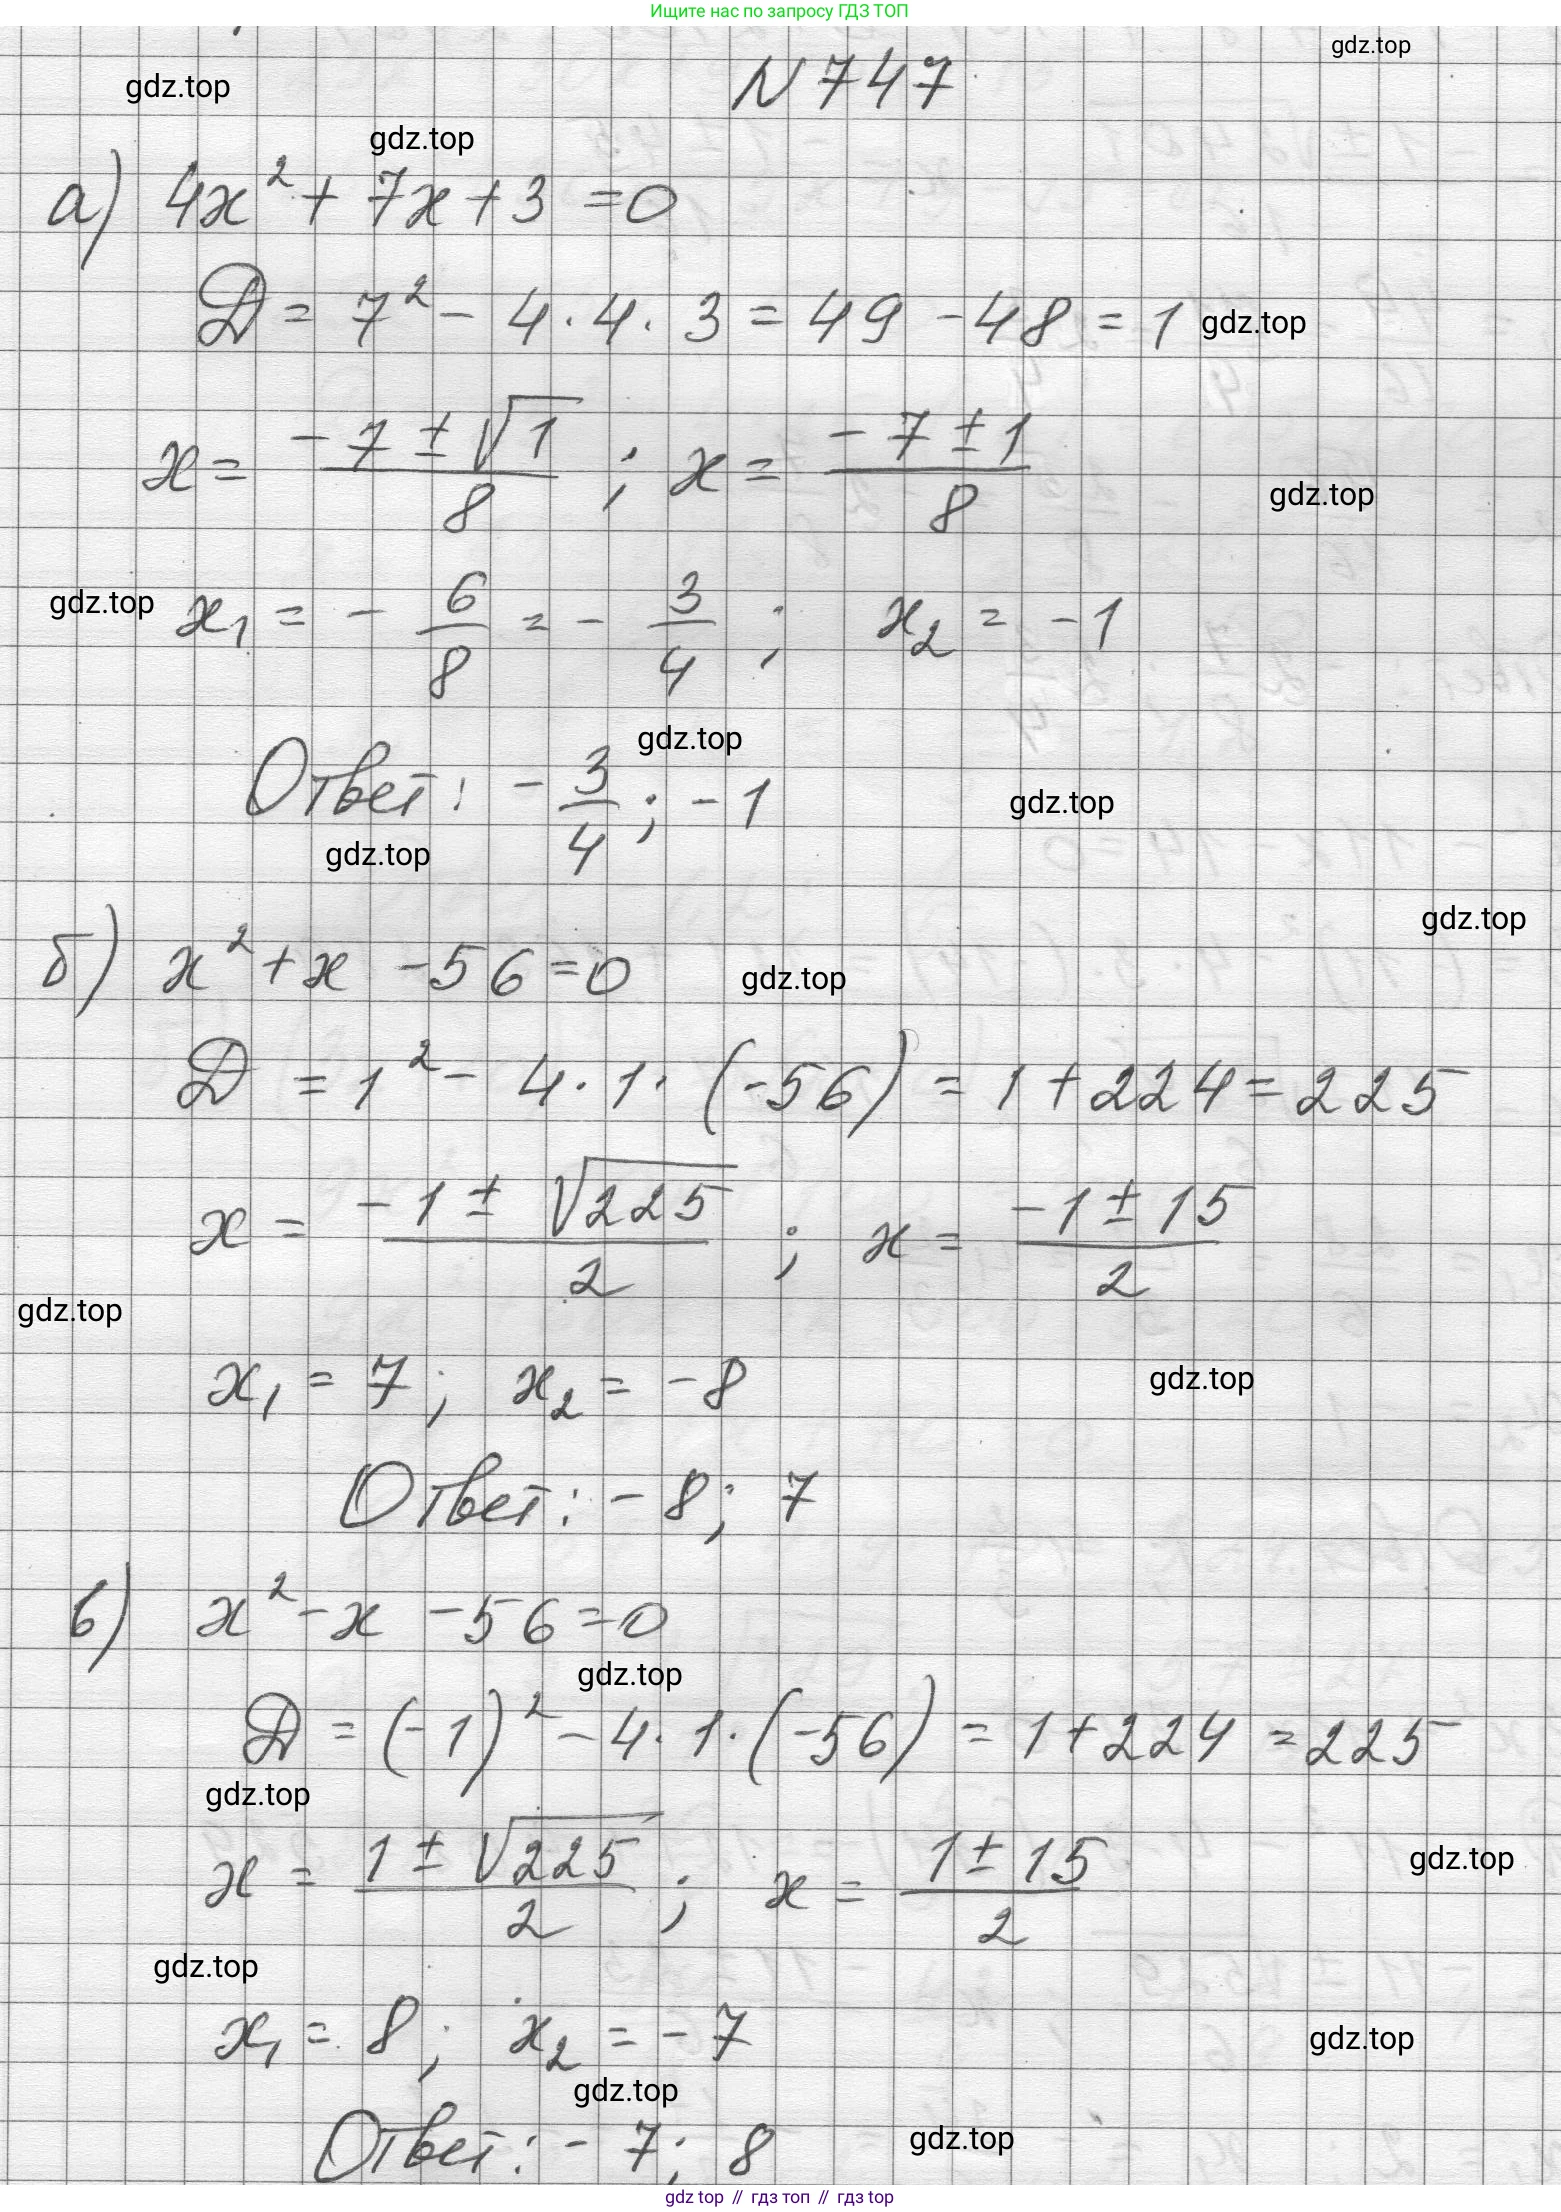 Ищите нас по запросу ГДЗ ТОП
gdz.top
N 747
gdz.top
gdz.top
а) 4x² + 7x + 3 = 0
Д = 7² - 4 · 4 · 3 = 49 - 48 = 1
gdz.top
x = (-7 ± √1)/8 ; x = (-7 ± 1)/8
gdz.top
gdz.top
x₁ = - 6/8 = - 3/4 ; x₂ = -1
gdz.top
Ответ: - 3/4 ; -1
gdz.top
gdz.top
gdz.top
б) x² + x - 56 = 0
gdz.top
Д = 1² - 4 · 1 · (-56) = 1 + 224 = 225
x = (-1 ± √225)/2 ; x = (-1 ± 15)/2
gdz.top
x₁ = 7 ; x₂ = -8
gdz.top
Ответ: - 8 ; 7
в) x² - x - 56 = 0
gdz.top
Д = (-1)² - 4 · 1 · (-56) = 1 + 224 = 225
gdz.top
x = (1 ± √225)/2 ; x = (1 ± 15)/2
gdz.top
gdz.top
x₁ = 8 ; x₂ = -7
gdz.top
gdz.top
Ответ: - 7 ; 8
gdz.top
gdz top // гдз топ // гдз top